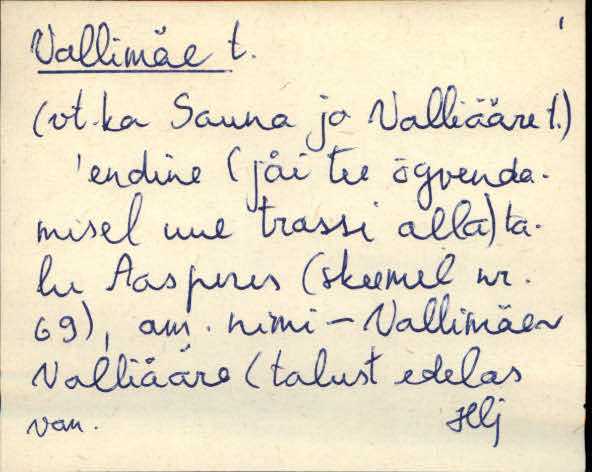 Vallimäe t.
(vt. ka Sauna ja Valliääre t.)
'endine (jäi tee õgvenda-
misel uue trassi alla) ta-
lu Aasperes (skeemil nr.
69), am. nimi - Vallimäe
Valliääre (talust edelas
van. Hlj